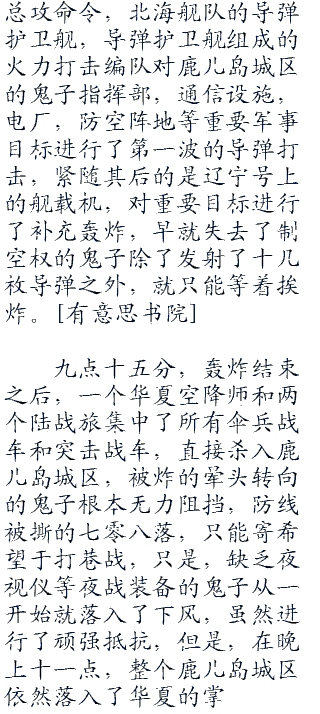 总攻命令，北海舰队的导弹
护卫舰，导弹护卫舰组成的
火力打击编队对鹿儿岛城区
的鬼子指挥部，通信设施，
电厂，防空阵地等重要军事
目标进行了第一波的导弹打
击，紧随其后的是辽宁号上
的舰载机，对重要目标进行
了补充轰炸，早就失去了制
空权的鬼子除了发射了十几
枚导弹之外，就只能等着挨
炸。[有意思书院]
九点十五分，轰炸结束
之后，一个华夏空降师和两
个陆战旅集中了所有伞兵战
车和突击战车，直接杀入鹿
儿岛城区，被炸的晕头转向
的鬼子根本无力阻挡，防线
被撕的七零八落，只能寄希
望于打巷战，只是，缺乏夜
视仪等夜战装备的鬼子从一
开始就落入了下风，虽然进
行了顽强抵抗，但是，在晚
上十一点，整个鹿儿岛城区
依然落入了华夏的掌